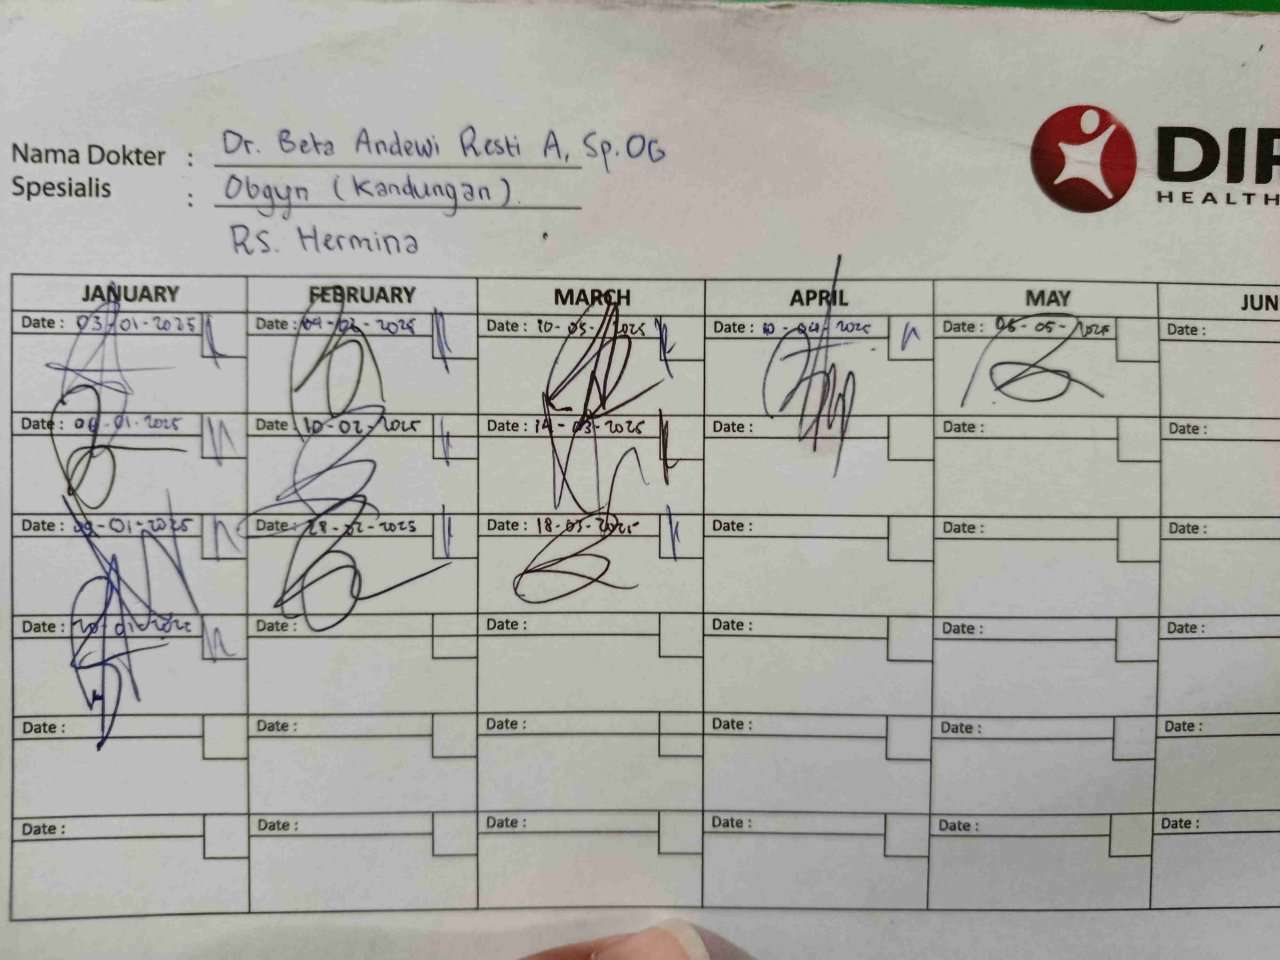 Nama Dokter : Dr. Beta Andewi Resti A, Sp.OG
Spesialis : Obgyn (Kandungan).
RS. Hermina
HEALTH
JANUARY FEBRUARY MARCH APRIL MAY JUN
Date : 03-01-2025 Date : 04-02-2025 Date : 10-03-2025 Date : 10-04-2025 Date : 05-2025 Date :
Date : 06-01-2025 Date : 10-02-2025 Date : 14-03-2025 Date : Date : Date :
Date : 09-01-2025 Date : 28-02-2025 Date : 18-03-2025 Date : Date : Date :
Date : 20-01-2025 Date : Date : Date : Date : Date :
Date : Date : Date : Date : Date : Date :
Date : Date : Date : Date : Date : Date :